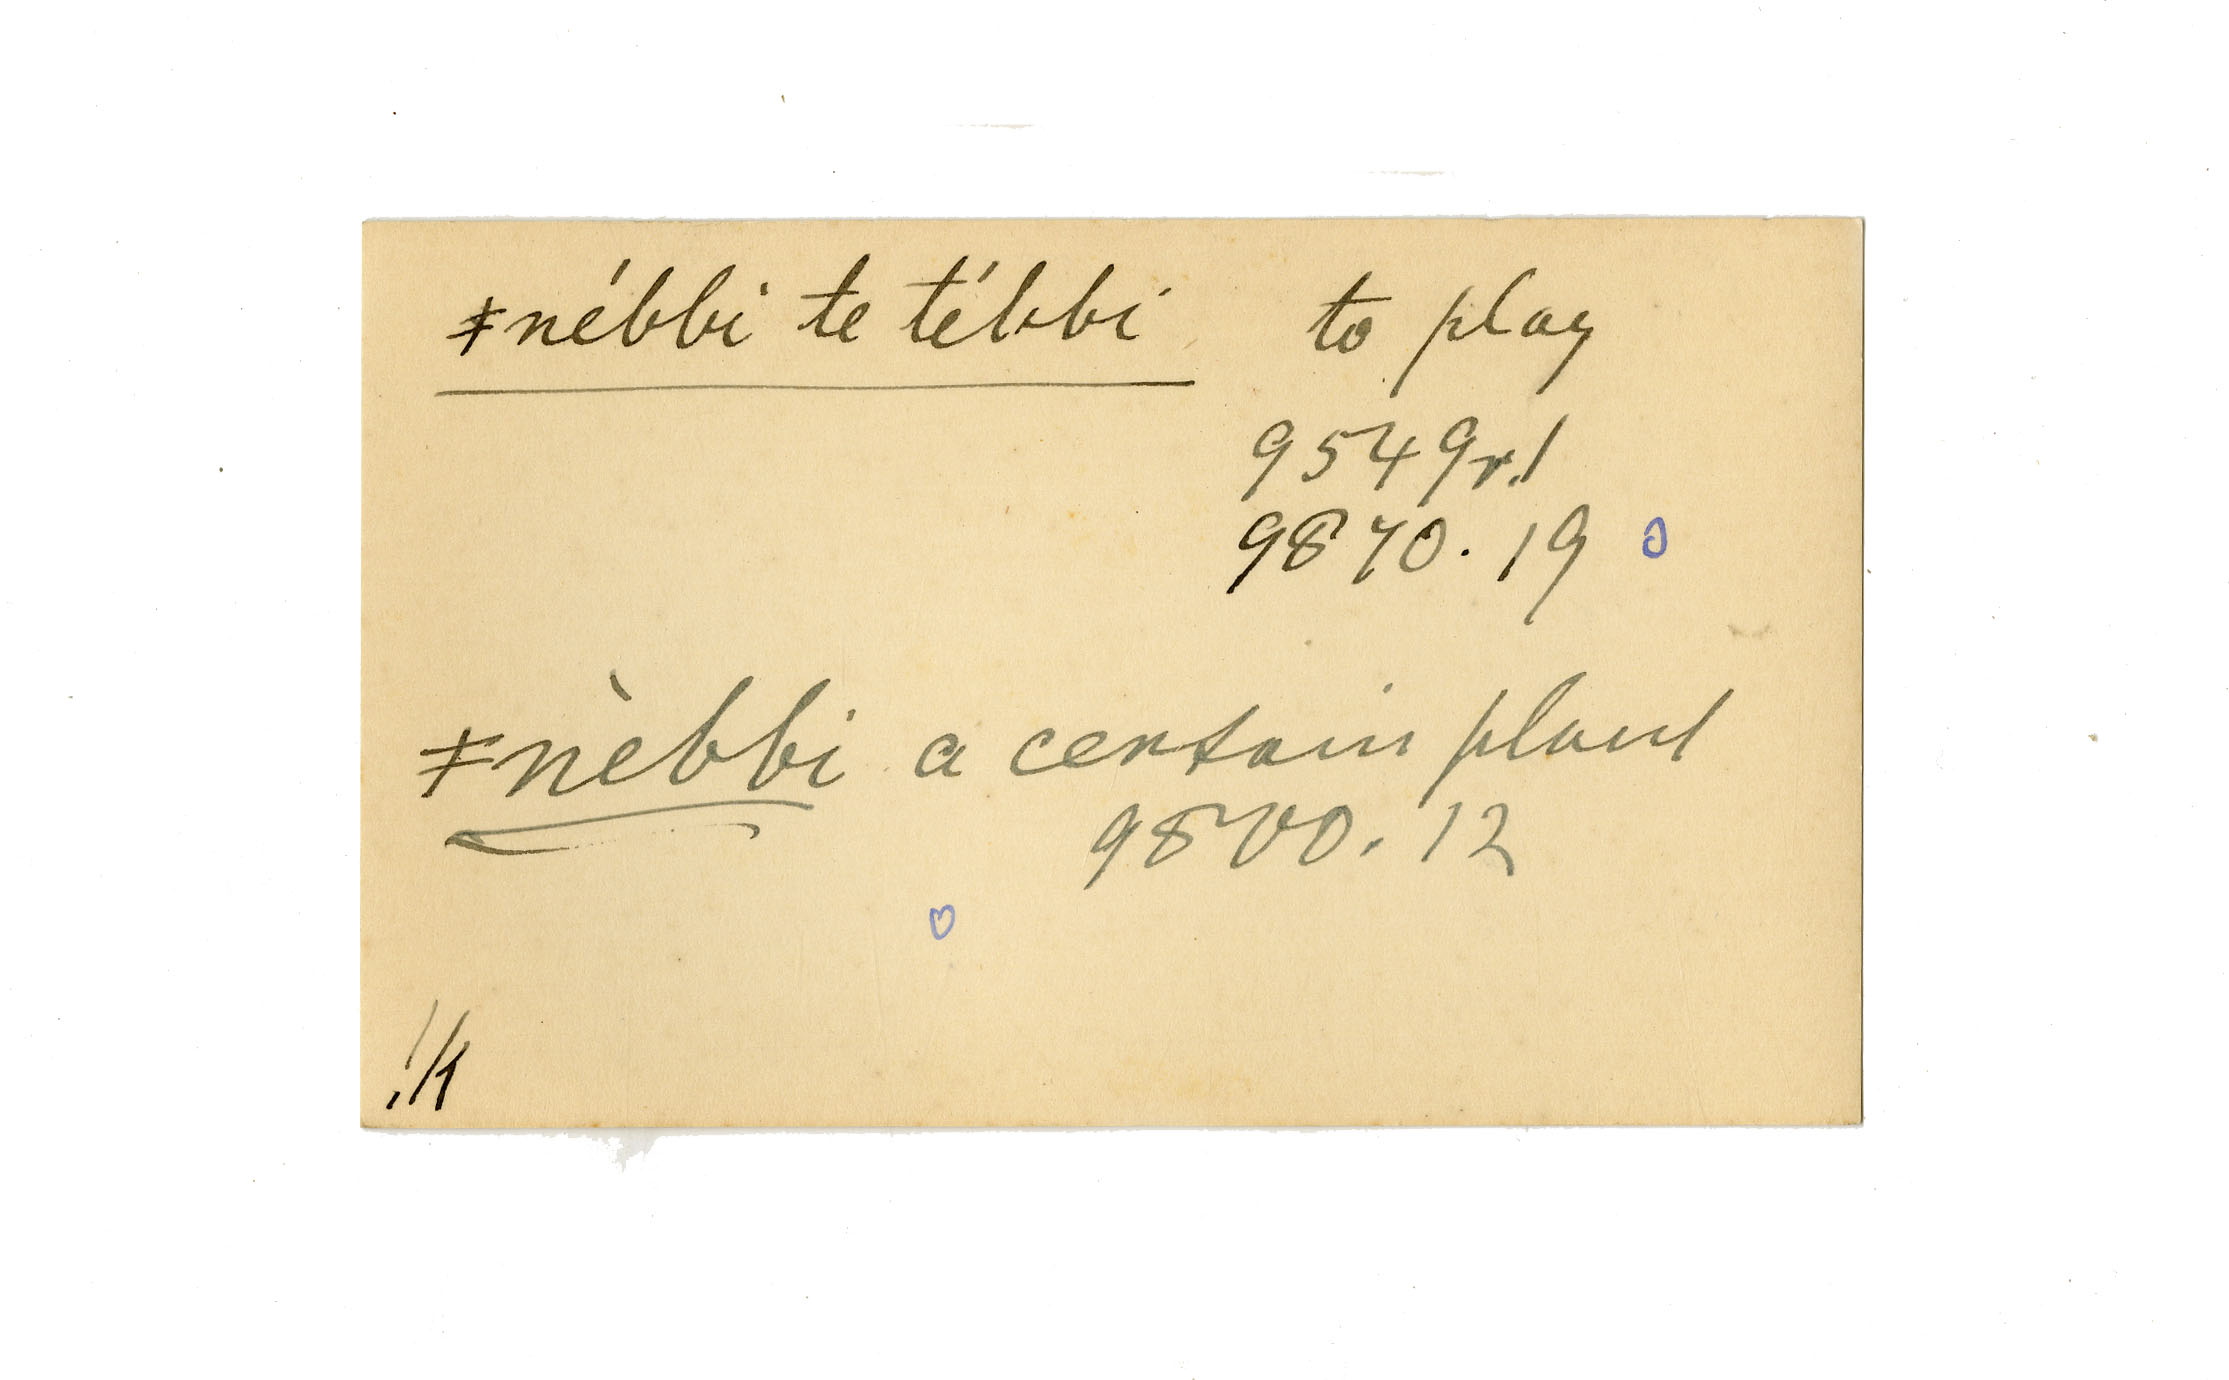 ǂnébbi te tébbi to play
9549r.1
9870.19
ǂnèbbi a certain plant
9800.12
!k